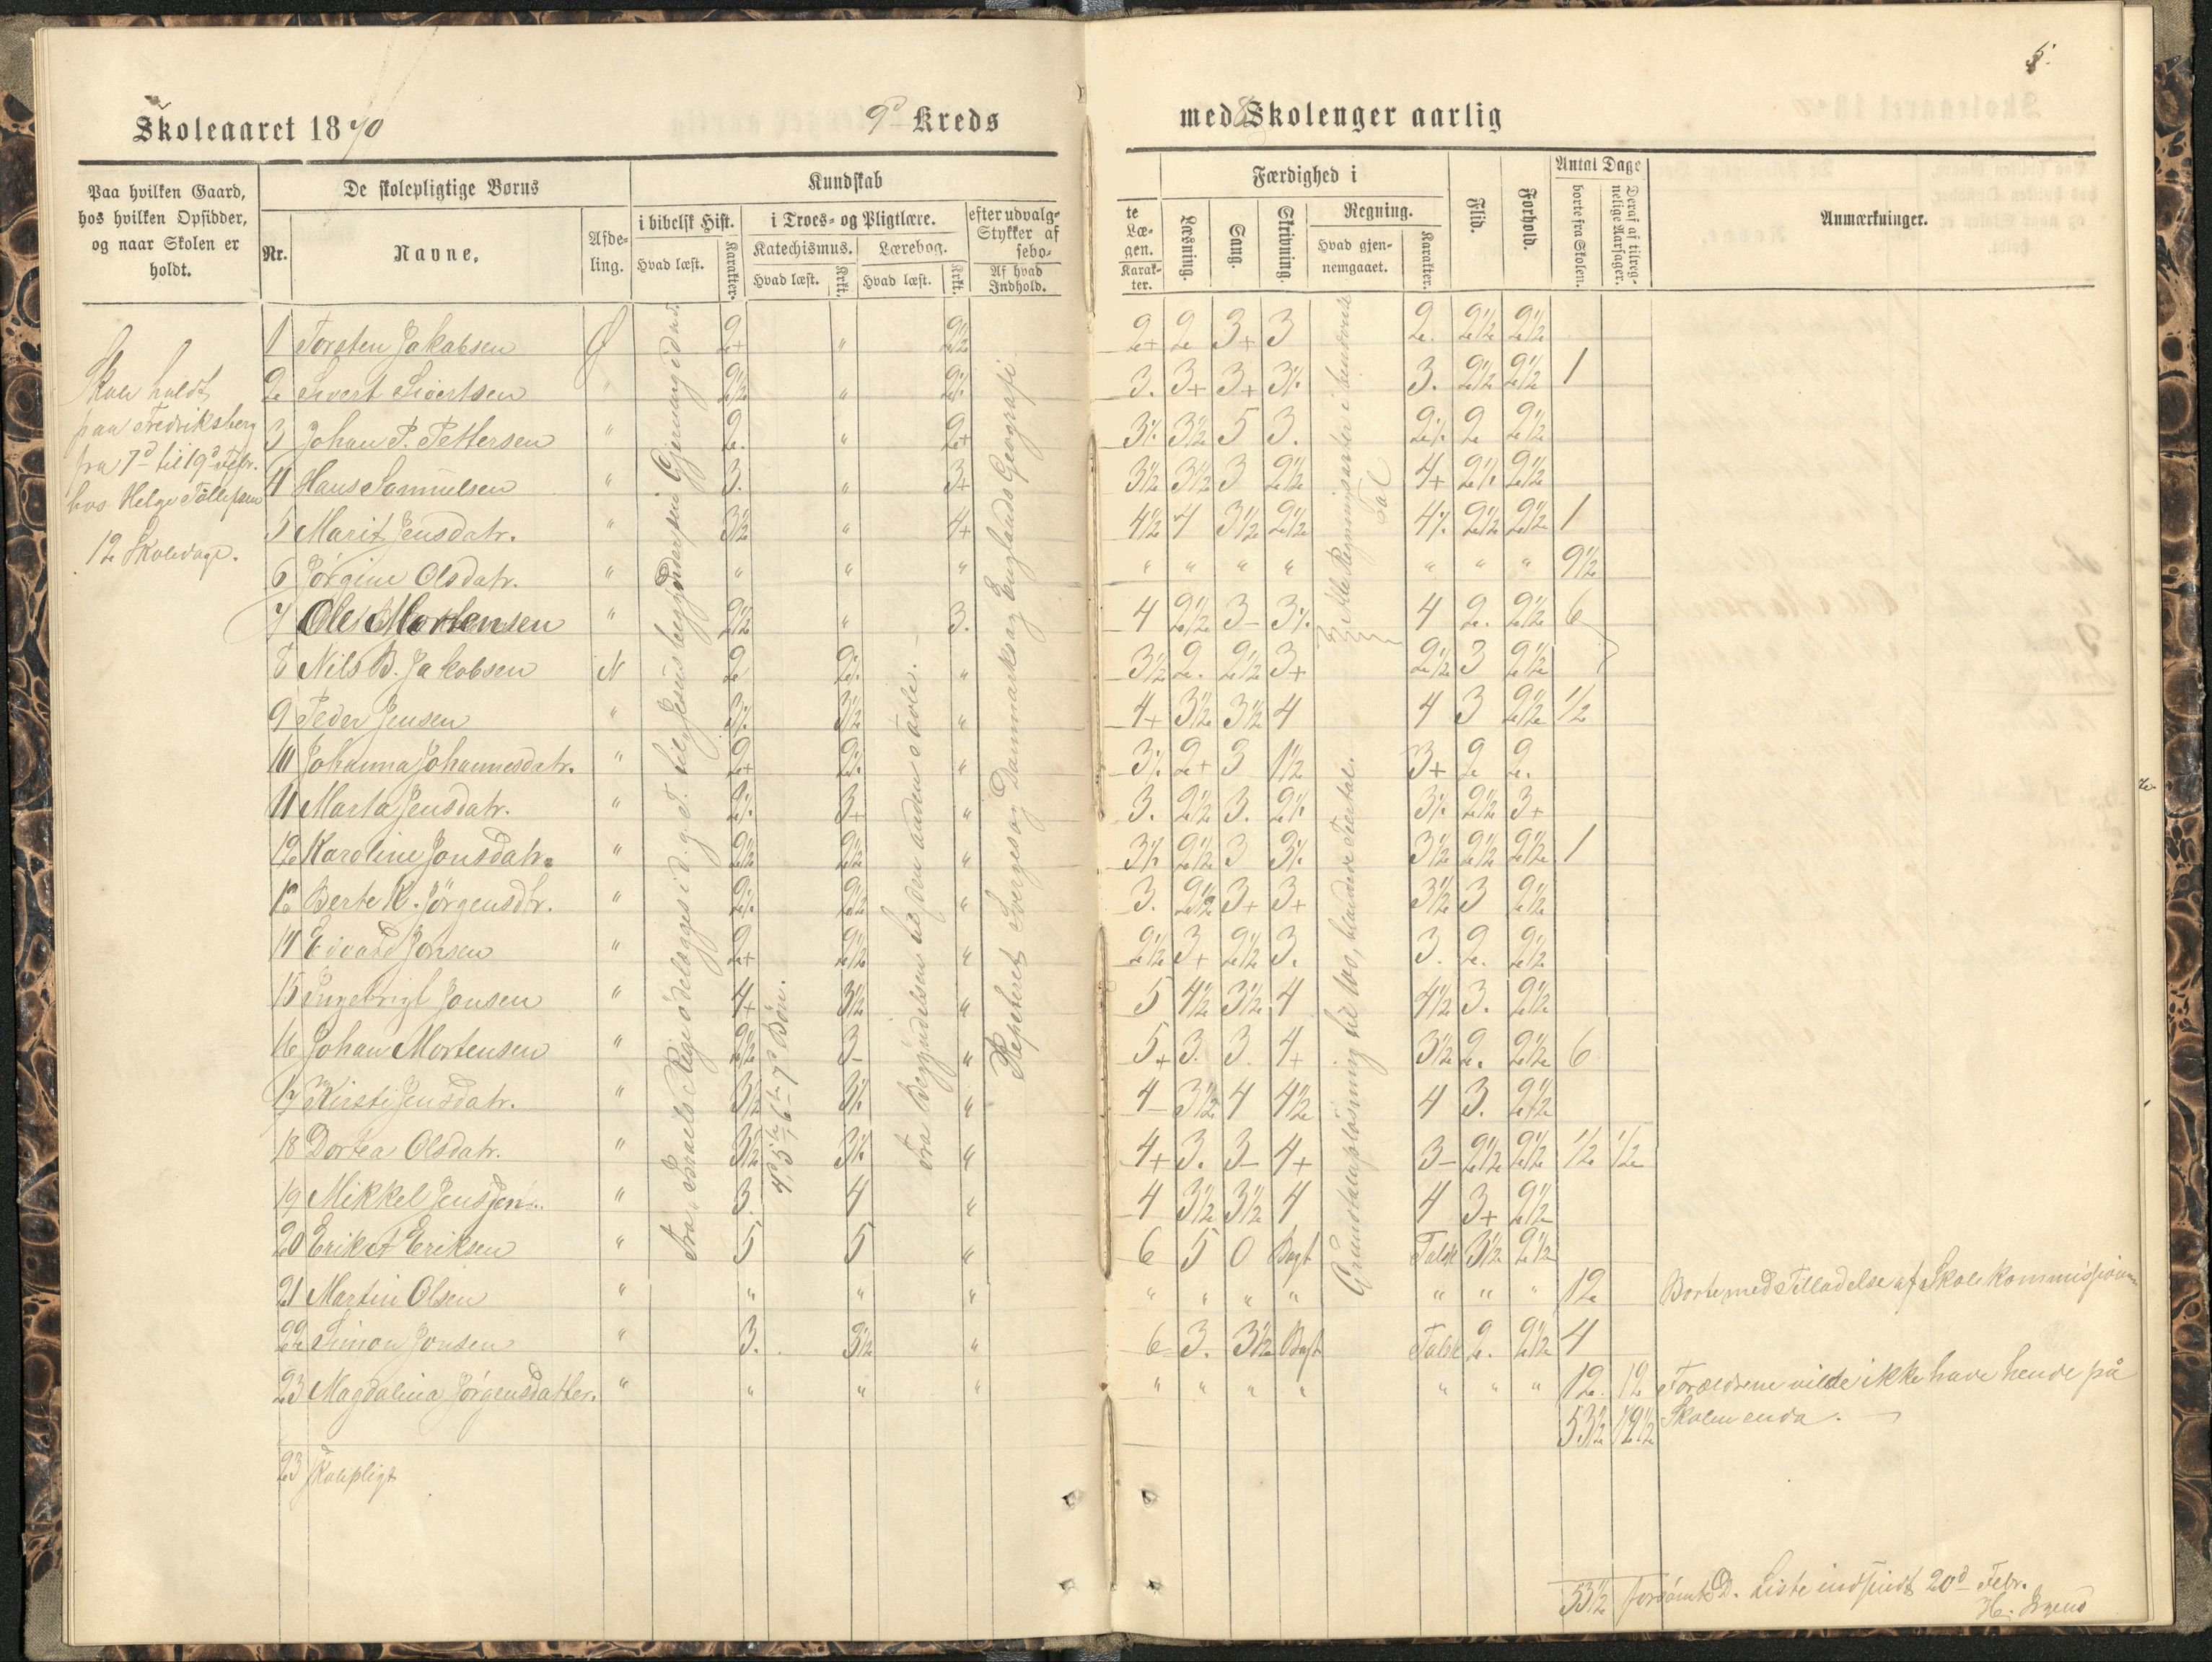 5.
Skoleaaret 1870
9d Kreds
med 8 Skolenger aarlig
Paa hvilken Gaard, hos hvilken Opsidder, og naar Skolen er holdt.
De skolepligtige Børns
Nr.
Navne.
Afde-ling.
Kundskab
i bibelsk Hist.
Hvad læst.
Karakter.
i Troes- og Pligtlære.
Katechismus.
Hvad læst.
Krkt.
Lærebog.
Hvad læst.
Krkt.
efter udvalg-
Stykker af
sebo-
Af hvad Indhold.
te
Læ-
gen.
Karak-
ter.
Færdighed i
Læsning.
Sang.
Skrivning.
Regning.
Hvad gjen-
nemgaaet.
Karakter.
Flid.
Forhold.
Antal Dage
borte fra Skolen.
Deraf af tilreg-
nelige Aarsager.
Anmærkninger.
Skole holdt
paa Fredriksberg
fra 7d til 19d Febr.
hos Helge Tollefsen
12 Skoledage.
1 Torsten Jakobsen Ø 2+ " 2½ 2+ 2 3+ 3 2. 2½ 2½
2 Sivert Sivertsen " 2½ " 2⁒ 3. 3+ 3+ 3⁒ 3. 2½ 2½ 1
3 Johan P. Pettersen " 2. " 2+ 3⁒ 3½ 5 3. 2⁒ 2 2½
4 Hans Samuelsen " 3. " 3+ 3½ 3½ 3 2½ 4+ 2⁒ 2½
5 Marit Jensdatr. " 3½ " 4+ 4½ 4 3½ 2½ 4⁒ 2½ 2½ 1
6 Jørgine Olsdatr. " " " " " " " " " " " 9½
7 Ole Mortensen " 2½ " 3. 4 2½ 3- 3⁒ 4 2. 2½ 6
8 Nils B. Jakobsen N 2 2⁒ " 3½ 2. 2½ 3+ 2½ 3 2½
9 Peder Jensen " 3⁒ 3½ " 4+ 3½ 3½ 4 4 3 2½ ½
10 Johanna Johannesdatr. " 2+ 2⁒ " 3⁒ 2+ 3 1½ 3+ 2 2.
11 Marta Jensdatr. " 2⁒ 3+ " 3. 2½ 3. 2⁒ 3⁒ 2½ 3+
12 Karoline Jonsdatr. " 2½ 2½ " 3⁒ 2½ 3 3⁒ 3½ 2½ 2½ 1
13 Berte K. Jörgensdtr. " 2⁒ 2½ " 3. 2½ 3+ 3+ 3½ 3 2½
14 Edvard Jonsen " 2+ 2½ " 2½ 3+ 2½ 3. 3. 2. 2½
15 Ingebrigt Jonsen " 4+ 3½ " 5 4½ 3½ 4 4½ 3. 2½
16 Johan Mortensen " 2½ 3- " 5+ 3. 3. 4+ 3½ 2. 2½ 6
17 Kirsti Jensdatr. " 3½ 3⁒ " 4- 3½ 4 4½ 4 3. 2½
18 Dortea Olsdatr. " 3½ 3⁒ " 4+ 3. 3- 4+ 3- 2½ 2½ ½ ½
19 Mikkel Jensen " 3. 4 " 4 3½ 3½ 4 4 3+ 2½
20 Erik A Eriksen " 5 5 " 6 5 0 Bogst 3½ 2½
21 Martin Olsen " " " " " " " " " " " 12 Borte med Tilladelse af Skolekommissionen
22 Simon Jonsen " 3. 3½ " 6 3. 3½ Bogst 2. 2½ 4
23 Magdalina Jörgensdatter. " " " " " " " " " " " 12. 12 Forældrene vilde ikke have hende på
Skolen enda.
53½ 12½
23 skolepligt
Fra Israels Rige ødelægges i d. g. T. til Jesus begynder sin Gjerning i d. n.
4d, 5te, 6te, 7d Bön.
Fra Begyndelsen til den anden Tavle.
Repeteret Sverges og Danmarks og Englands Geografi
4 ikke Regningsarter i benævnte Tal
Grundtalopløsning til 100, blandede Tiertal.
53½ forsömte D. Liste indsendt 20d Febr.